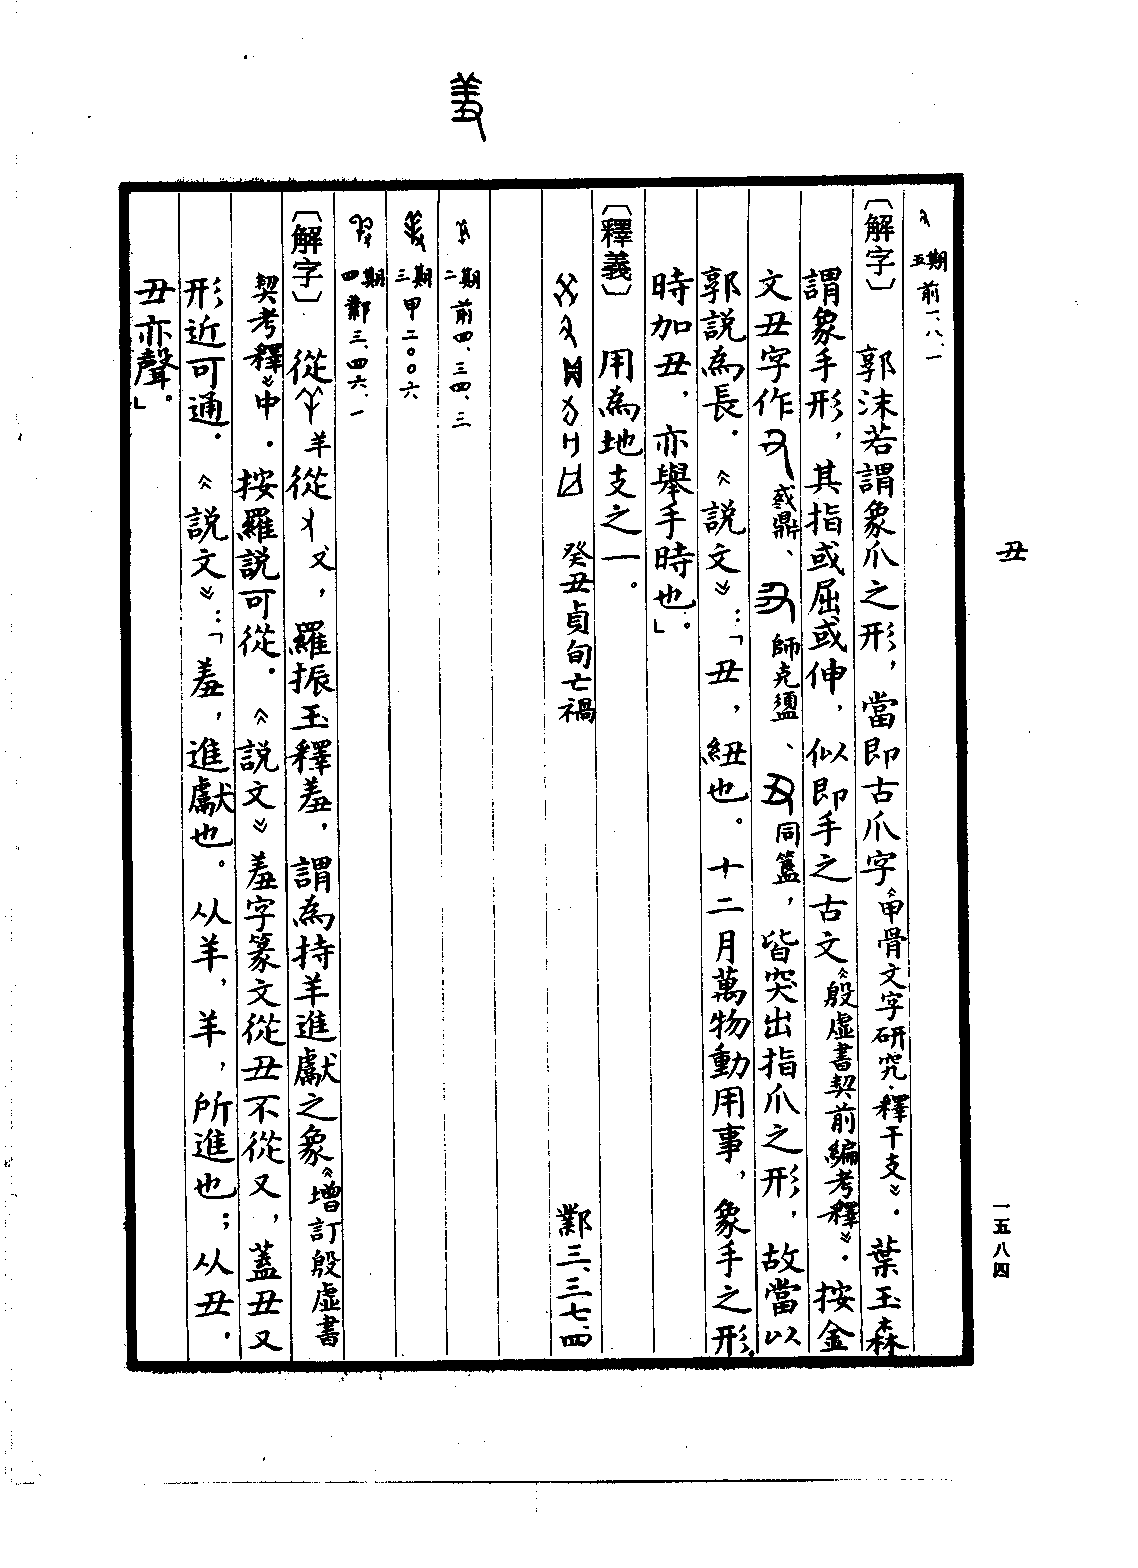 丑
一五八四
五期 前一、八、一
〔解字〕 郭沫若謂象爪之形，當即古爪字《甲骨文字研究·釋干支》。葉玉森
謂象手形，其指或屈或伸，似即手之古文《殷虛書契前編考釋》。按金
文丑字作 鼎、 師克盨、 同簋，皆突出指爪之形，故當以
郭說為長。《說文》：「丑，紐也。十二月萬物動用事，象手之形。
時加丑，亦舉手時也。」
〔釋義〕 用為地支之一。
癸丑貞旬亡禍 鄴三、三七、四
二期 前四、三四、三
三期 甲二〇〇六
四期 鄴三、四六、一
〔解字〕 從羊從又，羅振玉釋羞，謂為持羊進獻之象《增訂殷虛書
契考釋》中。按羅說可從。《說文》羞字篆文從丑不從又，蓋丑又
形近可通。《說文》：「羞，進獻也。从羊，羊，所進也；从丑，
丑亦聲。」